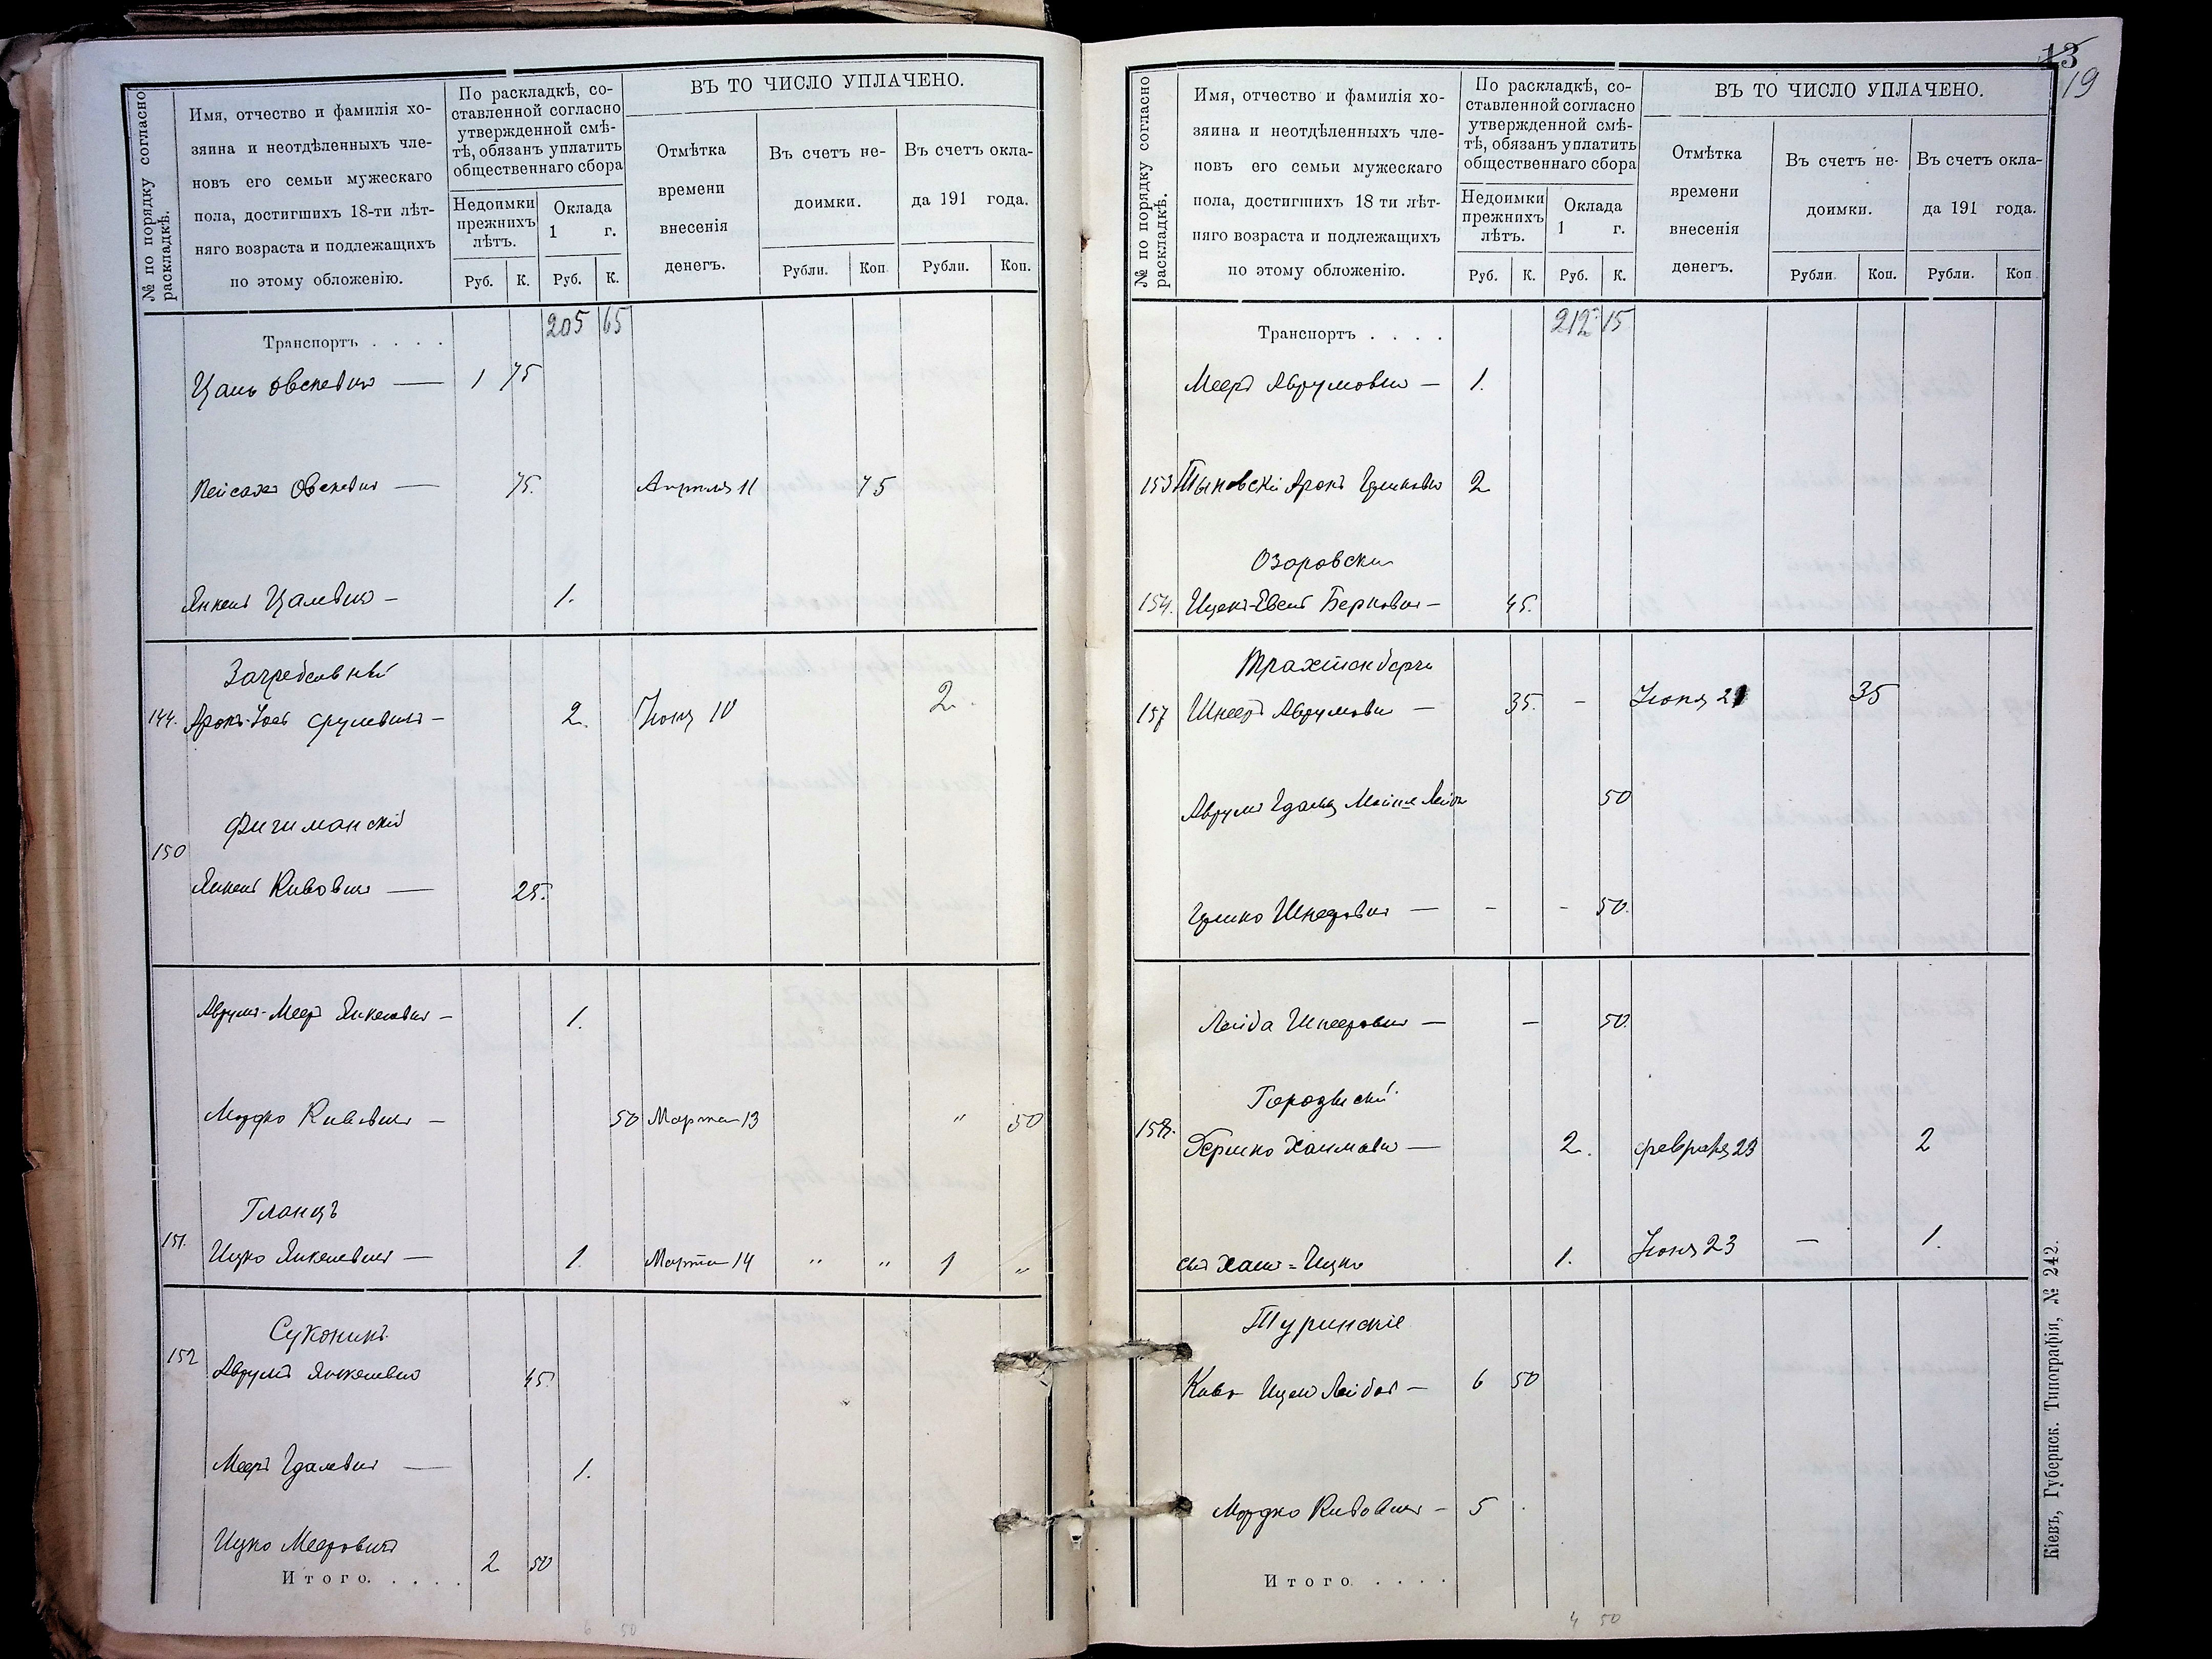 № по порядку согласно раскладкѣ.
Имя, отчество и фамилія хо-
зяина и неотдѣленныхъ чле-
новъ его семьи мужескаго
пола, достигшихъ 18-ти лѣт-
няго возраста и подлежащихъ
по этому обложенію.
По раскладкѣ, со-
ставленной согласно
утвержденной смѣ-
тѣ, обязанъ уплатить
общественнаго сбора
Недоимки
прежнихъ
лѣтъ.
Оклада
1 г.
Руб. К. Руб. К.
ВЪ ТО ЧИСЛО УПЛАЧЕНО.
Отмѣтка
времени
внесенія
денегъ.
Въ счетъ не-
доимки.
Въ счетъ окла-
да 191 года.
Рубли. Коп. Рубли. Коп.
Транспортъ . . . . 205 65
Цаль Овсеевичъ — 1 75
Пейсахъ Овсеевичъ — 75. Апрѣля 11 75
Янкель Цалевичъ — 1.
Загребельный
144. Аронъ-Іось Срулевичъ — 2. Іюня 10 2.
Фигиманскій
150
Янкель Кивовичъ — 25.
Аврумъ-Мееръ Янкелевичъ — 1.
Мордко Кивовичъ — 50 Марта 13 " 50
Гланцъ
151. Ицко Янкелевичъ — 1. Марта 14 " " 1 "
Суконикъ
152 Аврумъ Янкелевичъ 45.
Мееръ Гдалевичъ — 1.
Ицко Мееровичъ 2 50
Итого. . . . .
6 50
13
19
№ по порядку согласно раскладкѣ.
Имя, отчество и фамилія хо-
зяина и неотдѣленныхъ чле-
новъ его семьи мужескаго
пола, достигшихъ 18 ти лѣт-
няго возраста и подлежащихъ
по этому обложенію.
По раскладкѣ, со-
ставленной согласно
утвержденной смѣ-
тѣ, обязанъ уплатить
общественнаго сбора
Недоимки
прежнихъ
лѣтъ.
Оклада
1 г.
Руб. К. Руб. К.
ВЪ ТО ЧИСЛО УПЛАЧЕНО.
Отмѣтка
времени
внесенія
денегъ.
Въ счетъ не-
доимки.
Въ счетъ окла-
да 191 года.
Рубли. Коп. Рубли. Коп
Транспортъ . . . . 212 15
Мееръ Аврумовичъ — 1.
153 Аронъ 2
Озоровски
154. Берковичъ — 45.
Трахтенберги
157 Шнееръ Аврумовичъ — 35. - Іюня 21 35
Аврумъ Гдаль 50
Шнееровичъ — - - 50.
Лейба Шнееровичъ — — 50.
Городискій
158. Гершко Хаимовичъ — 2. Февраля 23 2
Хаимъ=Ицко 1. Іюня 23 — 1.
Туринскіе
Киво Лейбов — 6 50
Мордко Кивовичъ — 5 .
Итого . . . .
4 50
Кіевъ, Губернск. Типографія, № 242.